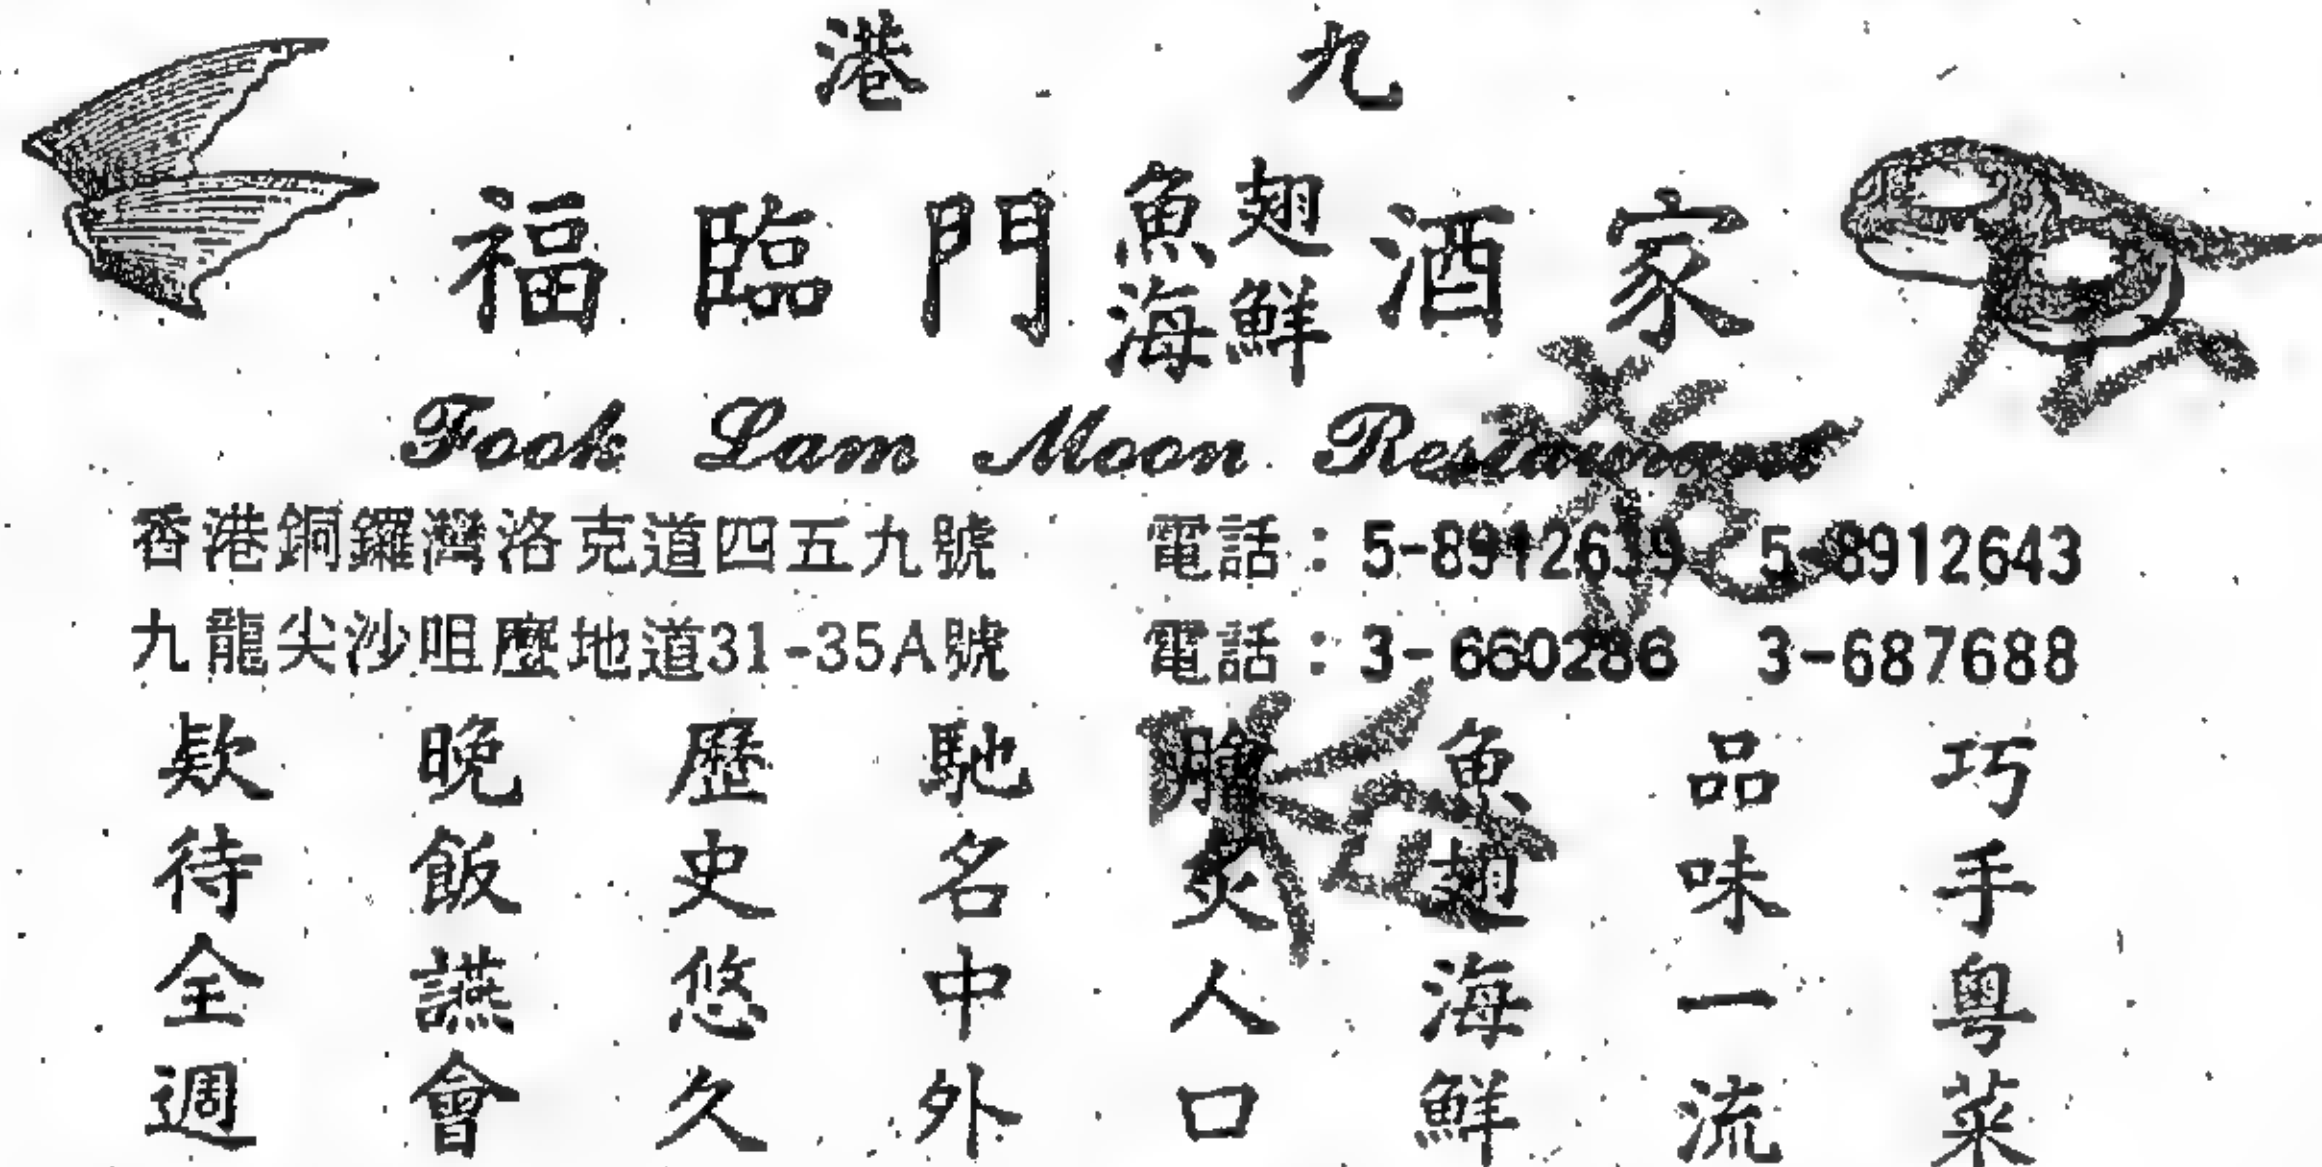 港九
福臨門魚翅海鮮酒家
Fook Lam Moon Restaurant
香港銅鑼灣洛克道四五九號 電話：5-8912639 5-8912643
九龍尖沙咀麼地道31-35A號 電話：3-660286 3-687688
巧手粵菜
品味一流
魚翅海鮮
膾炙人口
馳名中外
歷史悠久
晚飯讌會
欵待全週